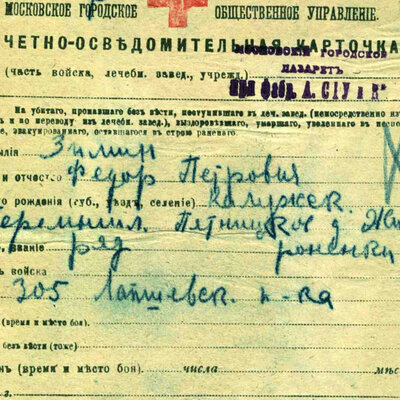 МОСКОВСКОЕ ГОРОДСКОЕ ОБЩЕСТВЕННОЕ УПРАВЛЕНІЕ.
ЧЕТНО-ОСВѢДОМИТЕЛЬНАЯ КАРТОЧКА
МОСКОВСКІЙ ГОРОДСКОЕ
(часть войска, лечебн. завед., учрежд.)
ЛАЗАРЕТЪ
При фабр. А. СІУ и К°
На убитаго, пропавшаго безъ вѣсти, поступившаго въ леч. завед. (непосредственно изъ
и по переводу изъ лечебн. завед.), выздоровѣвшаго, умершаго, уволеннаго въ
эвакуированнаго, оставшагося въ строю раненаго.
Зимин
и отчество Федор Петрович
рожденія (губ., уѣзд., селеніе) Калужск.
Перемышл. Пятницков д.
званіе ряд
войска
305 Лаишевск. п-ка
(время и мѣсто боя).
безъ вѣсти (тоже)
(время и мѣсто боя). числа